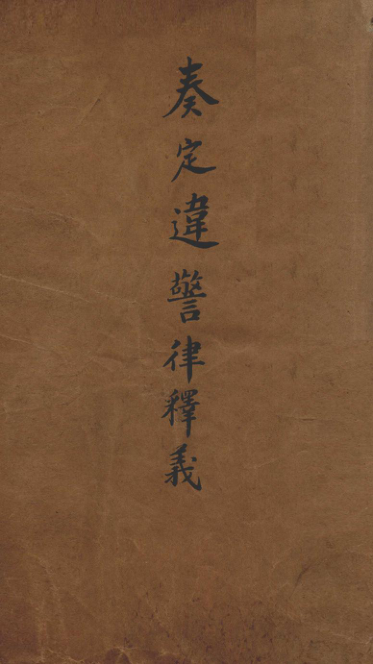 奏定違警律釋義